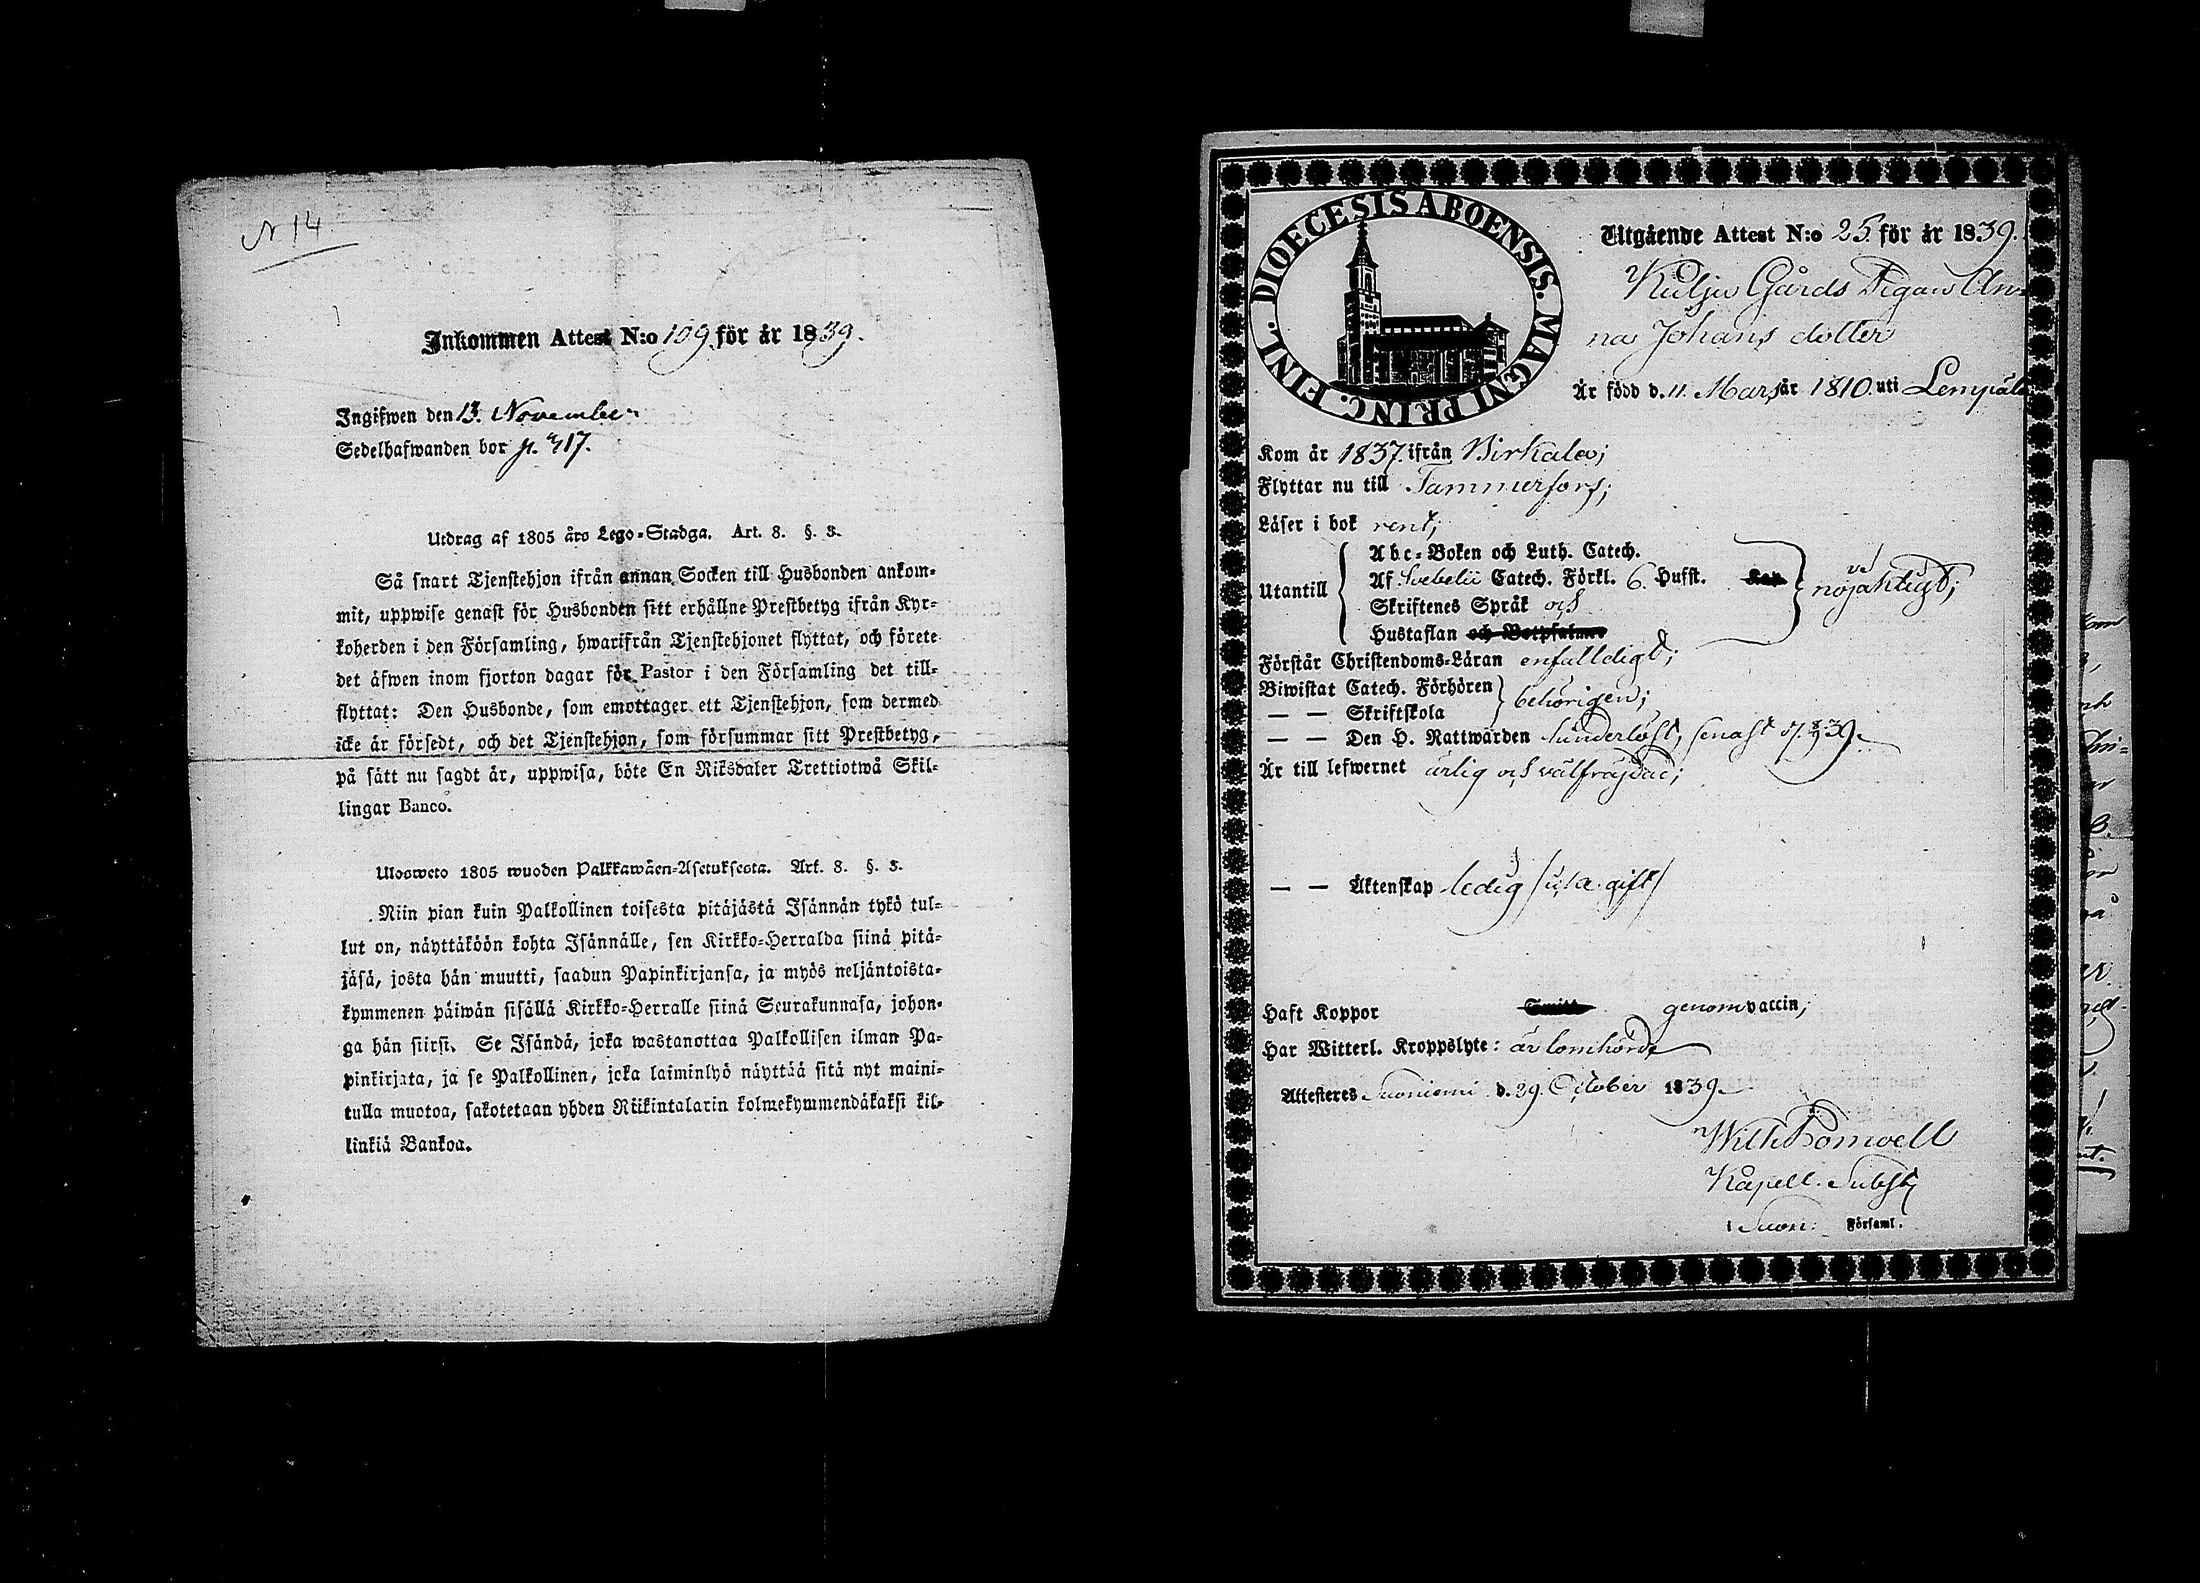 N 14
Inkommen Attest N:o 109 för år 1839.
Ingifwen den 13. November
Sedelhafwanden bor p. 417.
Utdrag af 1805 års Lego-Stadga. Art. 8. §. 3.
Så snart Tjenstehjon ifrån annan Socken till Husbonden ankom-
mit, uppwise genast för Husbonden sitt erhållne Prestbetyg ifrån Kyr-
koherden i den Församling, hwarifrån Tjenstehjonet flyttat, och förete
det äfwen inom fjorton dagar för Pastor i den Församling det till-
flyttat: Den Husbonde, som emottager ett Tjenstehjon, som dermed
icke är försedt, och det Tjenstehjon, som försummar sitt Prestbetyg,
på sätt nu sagdt är, uppwisa, böte En Riksdaler Trettiotwå Skil-
lingar Banco.
Ulosweto 1805 wuoden Palkkawäen-Asetuksesta. Art. 8. §. 3.
Niin pian kuin Palkollinen toisesta pitäjästä Isännän tykö tul-
lut on, näyttäköön kohta Isännälle, sen Kirkko-Herralda siinä pitä-
jäsä, josta hän muutti, saadun Papinkirjansa, ja myös neljäntoista-
kymmenen päiwän sisällä Kirkko-Herralle siinä Seurakunnasa, johon-
ga hän siirsi. Se Isändä, joka wastanottaa Palkollisen ilman Pa-
pinkirjata, ja se Palkollinen, joka laiminlyö näyttää sitä nyt maini-
tulla muotoa, sakotetaan yhden Riikintalarin kolmekymmendäkaksi kil-
linkiä Bankoa.
DIOECESIS ABOENSIS. MAGNI PRINC. FINL.
Utgående Attest N:o 25. för år 1839.
Kulju Gårds Pigan An-
na Johans dotter
Är född d. 11. Mars år 1810. uti Lempäla
Kom år 1837. ifrån Birkala;
Flyttar nu till Tammerfors;
Läser i bok rent;
Utantill
Abc-Boken och Luth. Catech.
Af Svebelii Catech. Förkl. 6. Husst. Kap.
Skriftenes Språk och
Hustaflan och Botpsalmer
nöjaktigt;
Förstår Christendoms-Läran enfalldigt;
Biwistat Catech. Förhören
— — Skriftskola
behörigen;
— — Den H. Nattwarden hinderlöst, senast
Är till lefwernet ärlig och välfräjdad;
— — Äktenskap ledig
Haft Koppor Smitt genom vaccin;
Har Witterl. Kroppslyte: är lomhörd
Attesteres Suoniemi d. 29. October 1839.
Kapell. Subst.
i Suon: Församl.